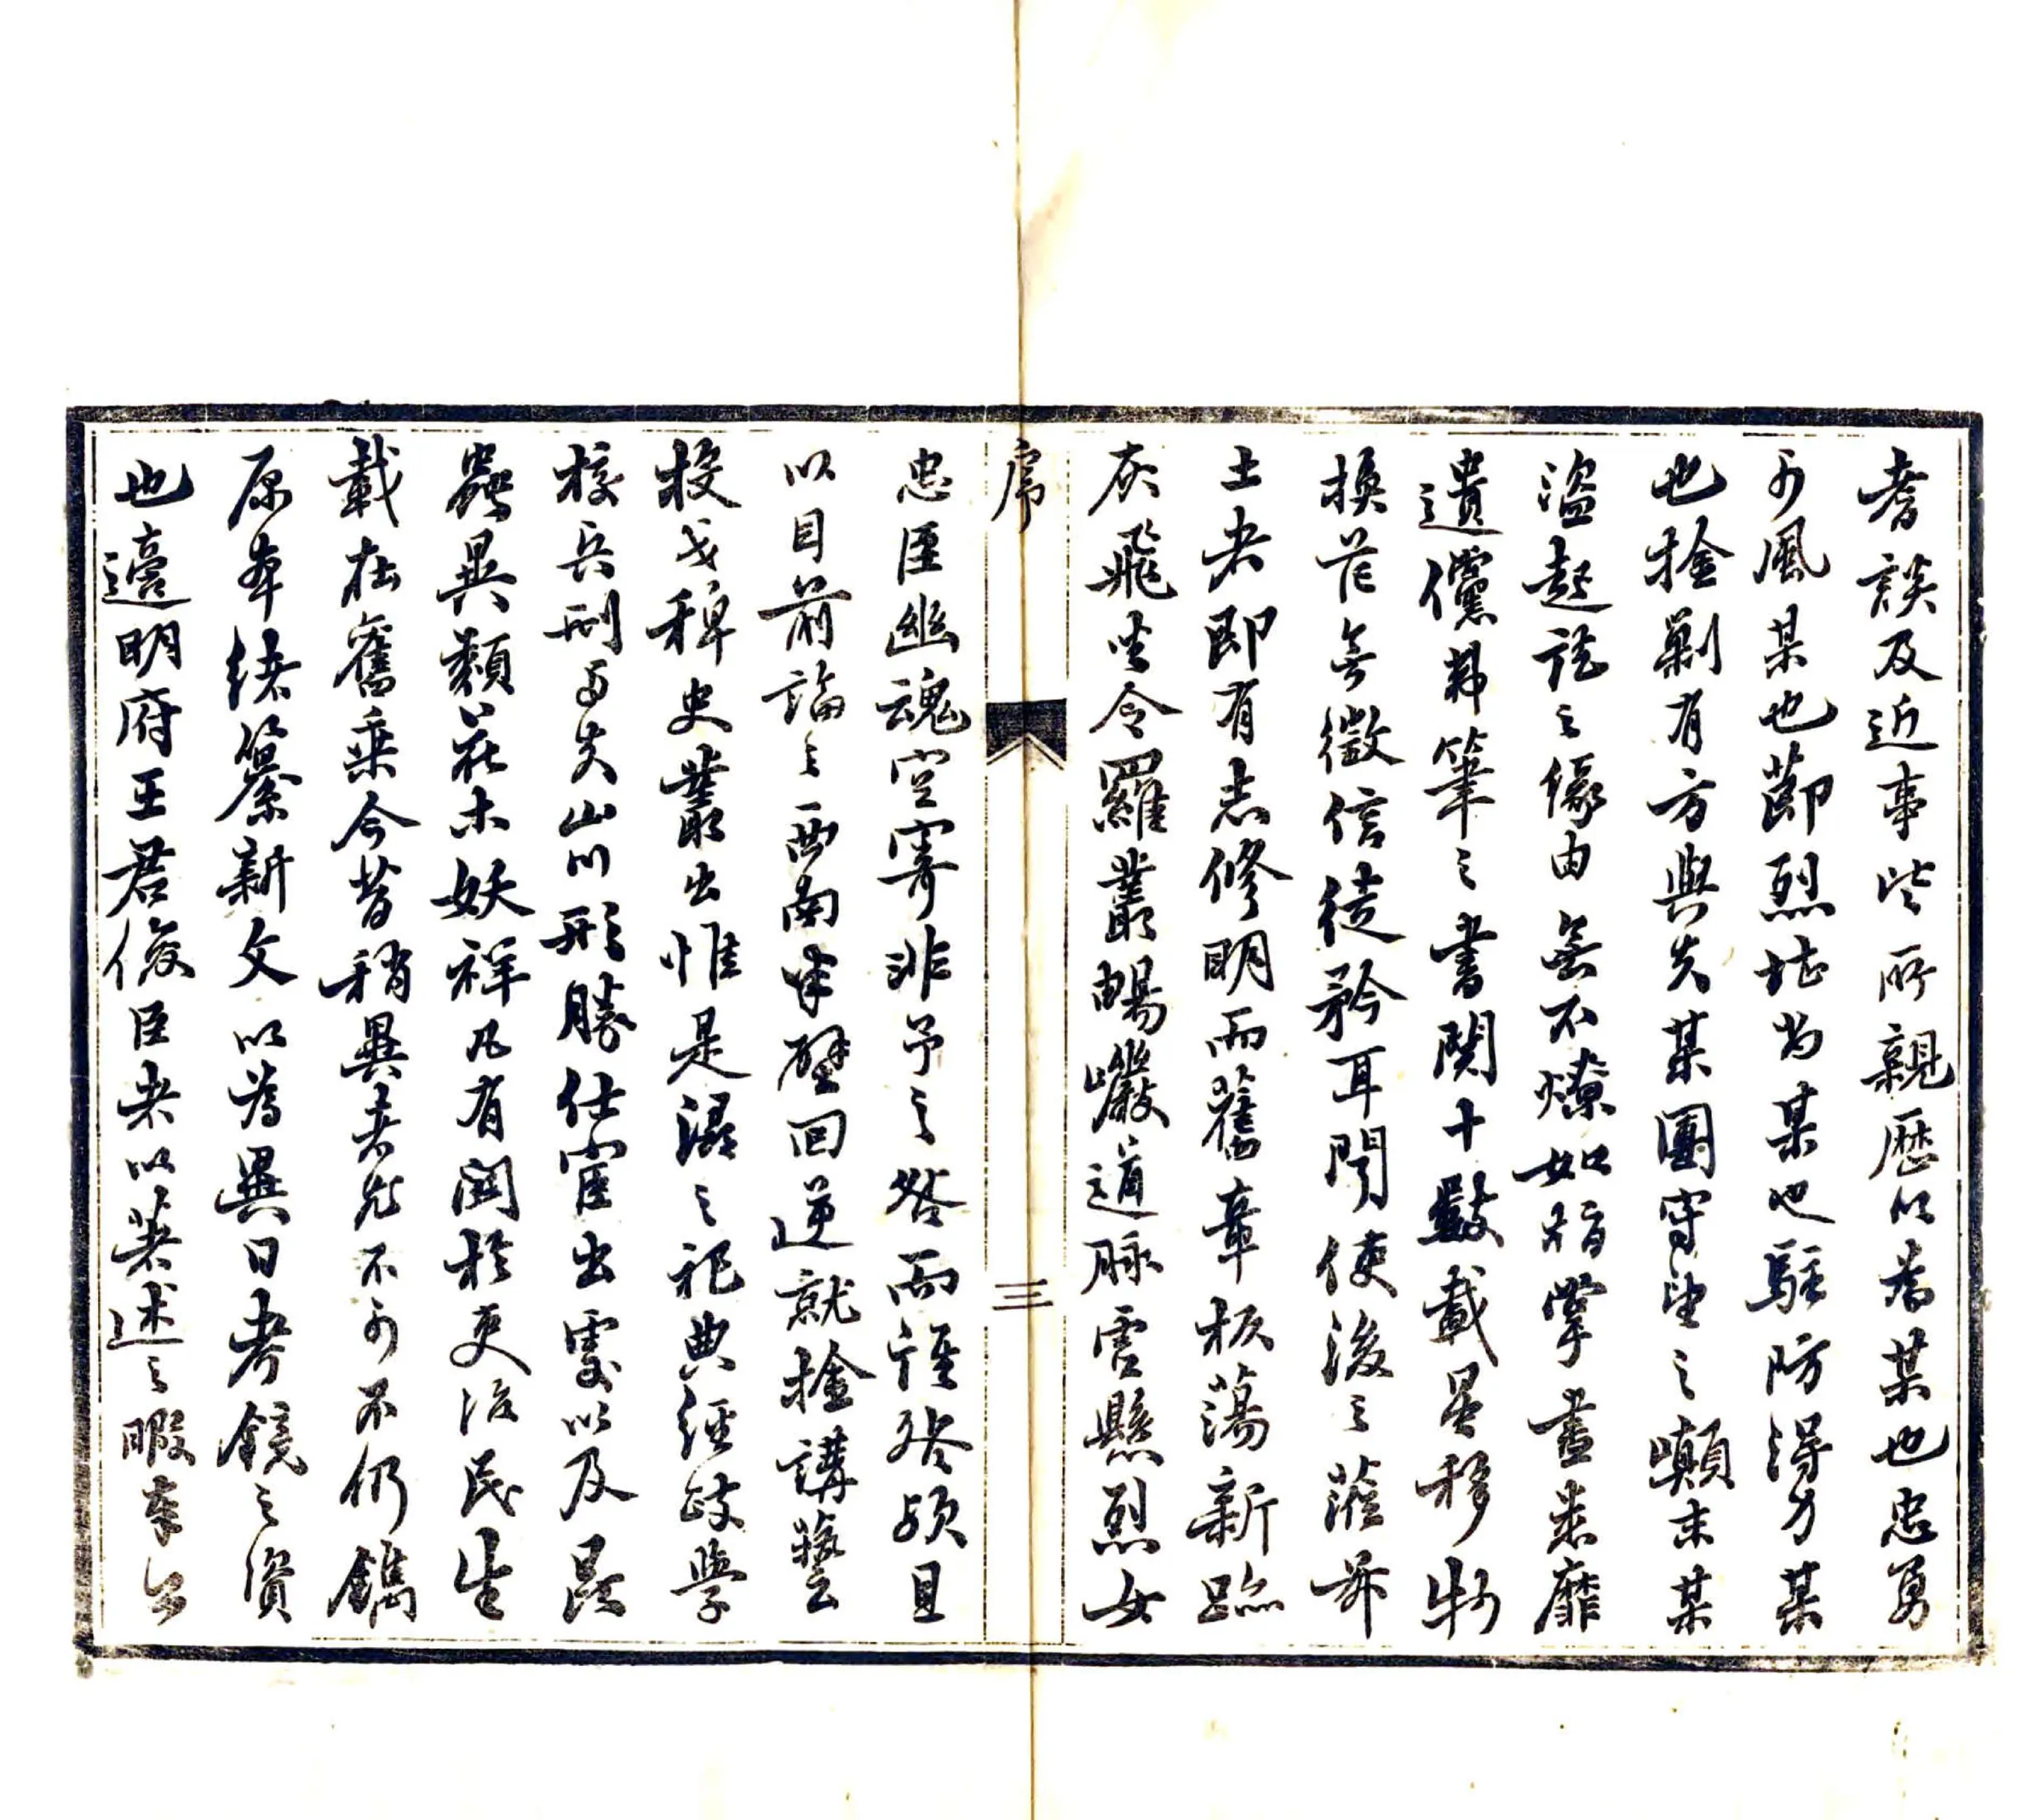 耆談及近事些所親歷以為某也忠勇
可風某也節烈堪為某也駐防得力某
也捡剿有方與夫某團守望之顛末某
盜起訖之緣由無不燎如指掌盡悉靡
遺儻弗筆之書閱十數載星移物
換茫無徵信徒矜耳聞使後之蒞茲
土者即有志修明而舊章板蕩新跡
灰飛坐令羅叢暢巖道脉雲懸烈女
序
三
忠臣幽魂空寄非予之咎而誰咎頋且
以目前論之西南半壁回逆就擒講藝
投戈稗史叢出惟是潯之祀典經政學
校兵刑與夫山川形勝仕宦出處以及昆
蟲異類花木妖祥凡有関於吏治民生
載在舊乘今昔稍異者尤不可不仍鐫
原本緒纂新文以為異日考鏡之資
也適明府王君俊臣来以著述之暇奉公